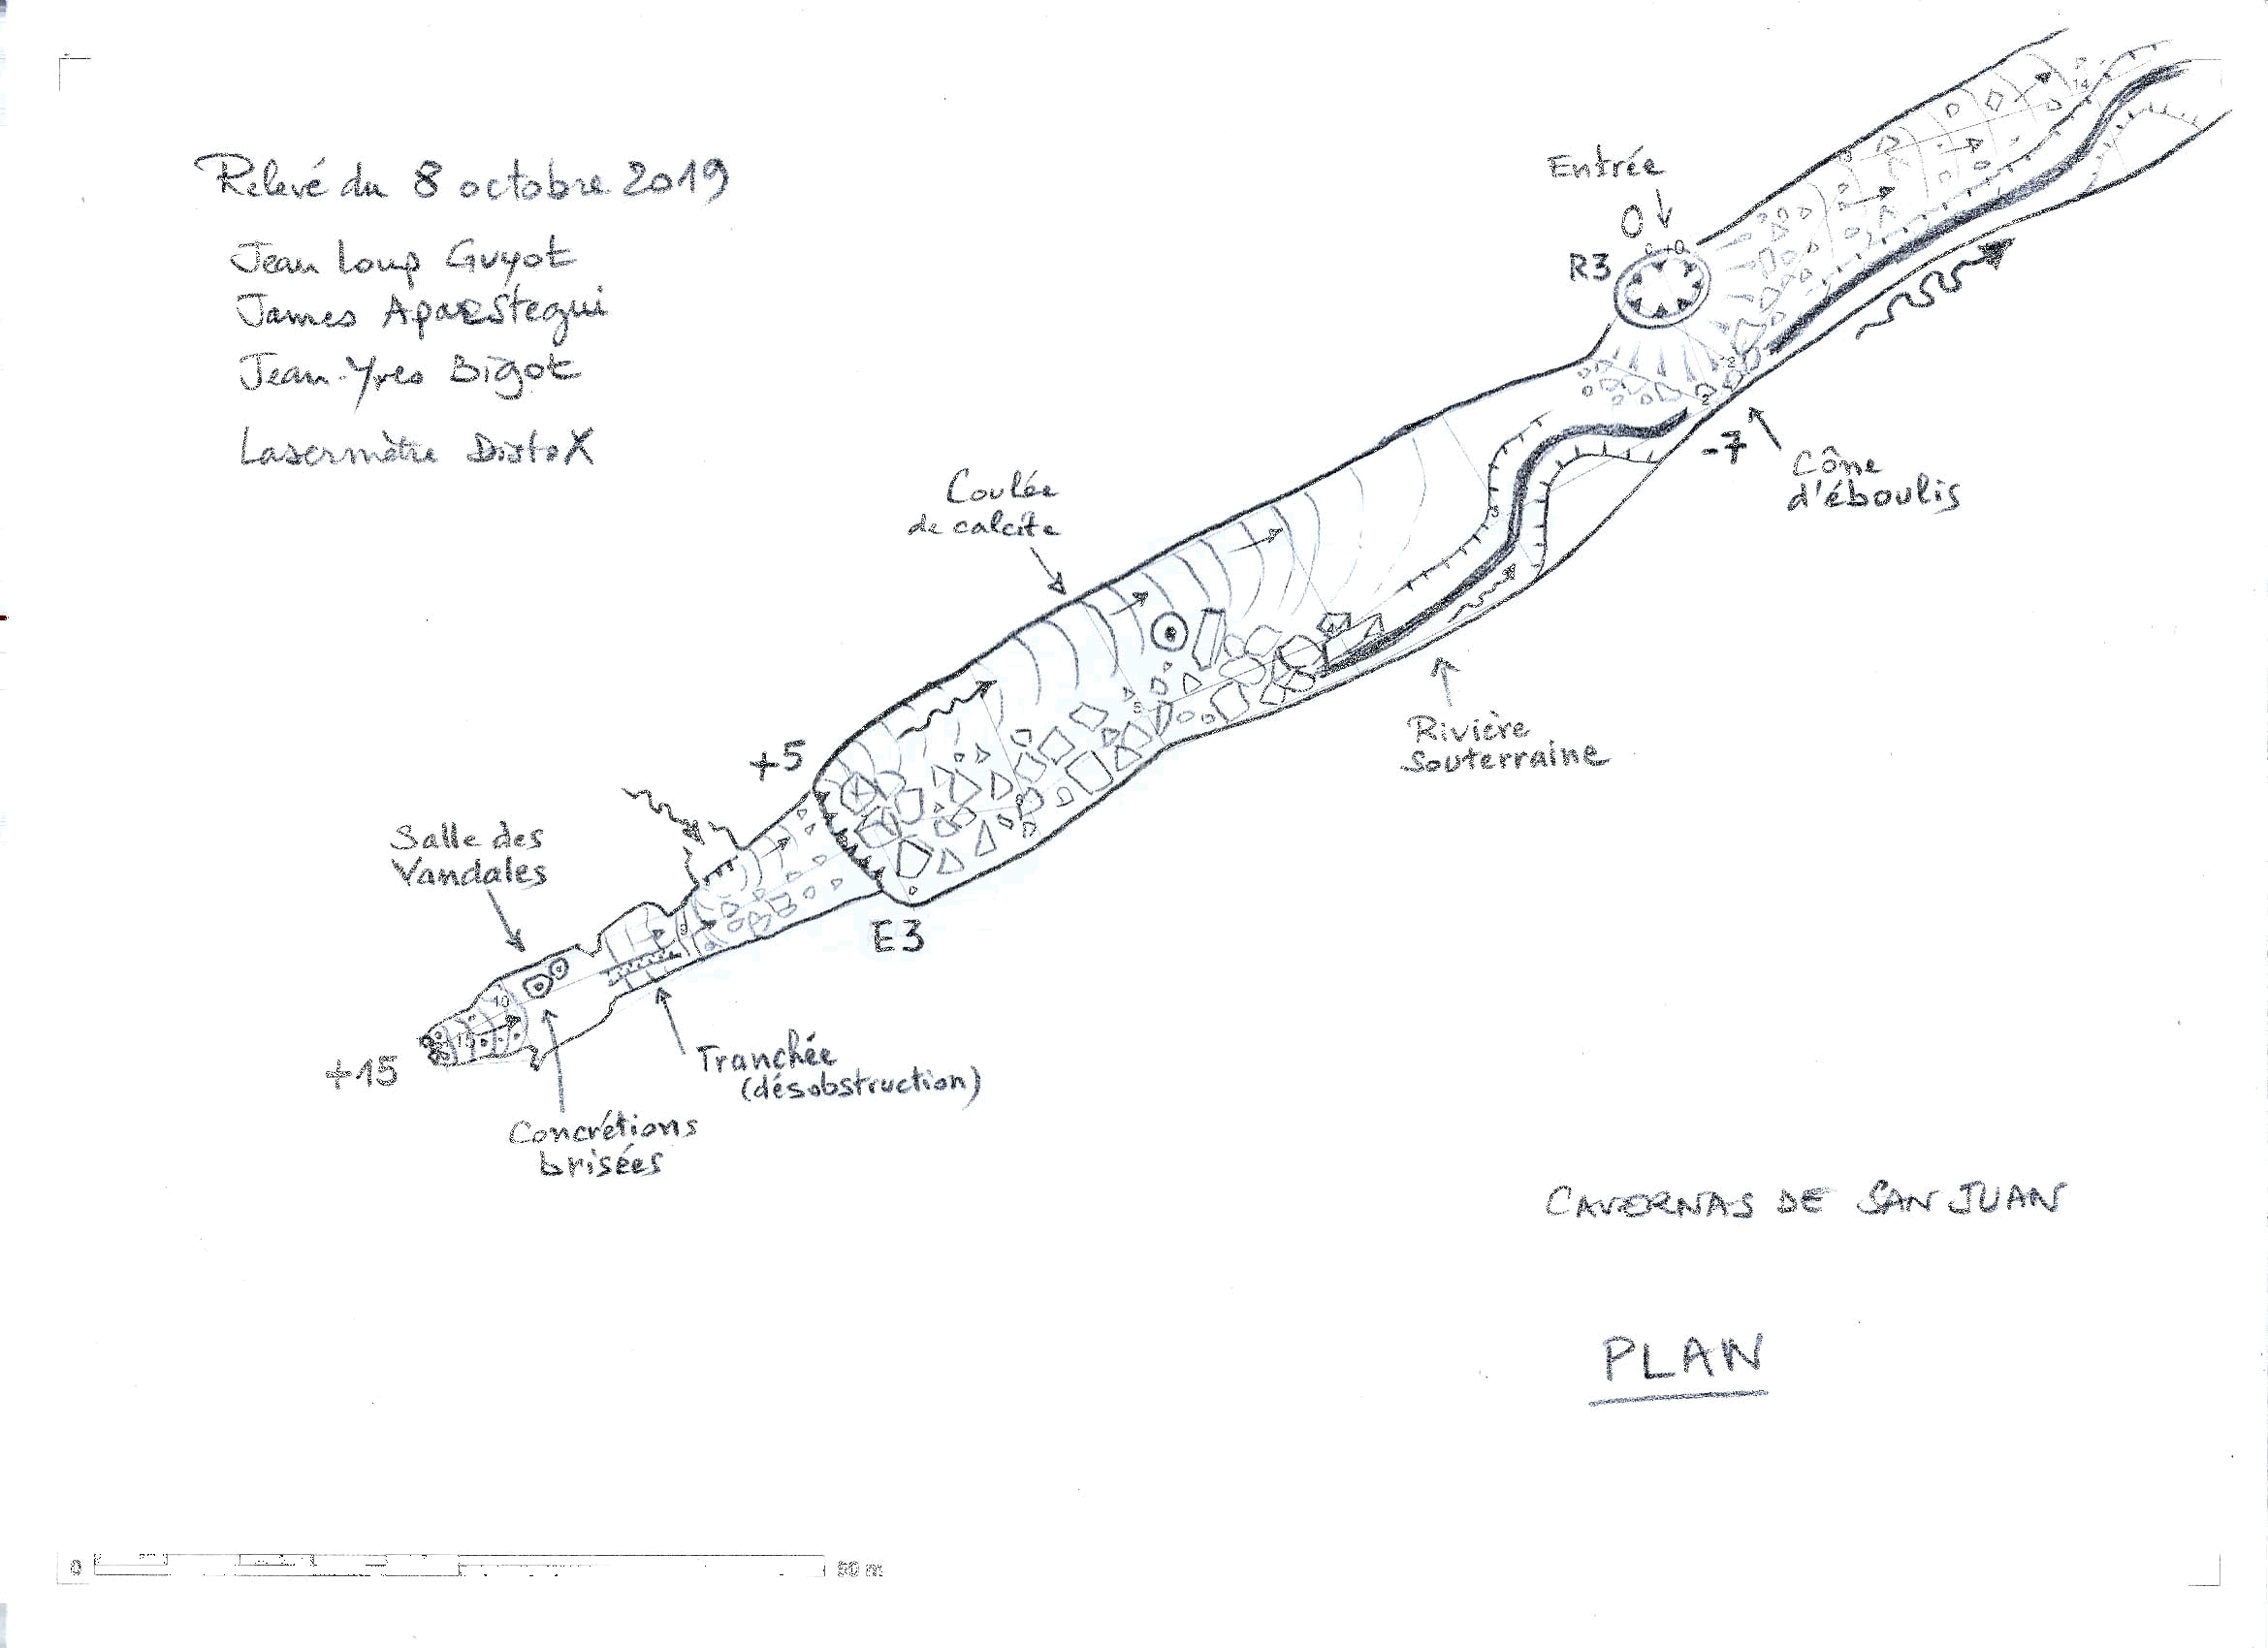 Relevé du 8 octobre 2019
Jean Loup Guyot
James Apaestegui
Jean-Yves Bigot
Lasermètre DistoX
Entrée
0
R3
-7
Cône
d'éboulis
Coulée
de calcite
Rivière
Souterraine
+5
E3
Salle des
Vandales
+15
Tranchée
(désobstruction)
Concrétions
brisées
CAVERNAS DE SAN JUAN
PLAN
0 50 m